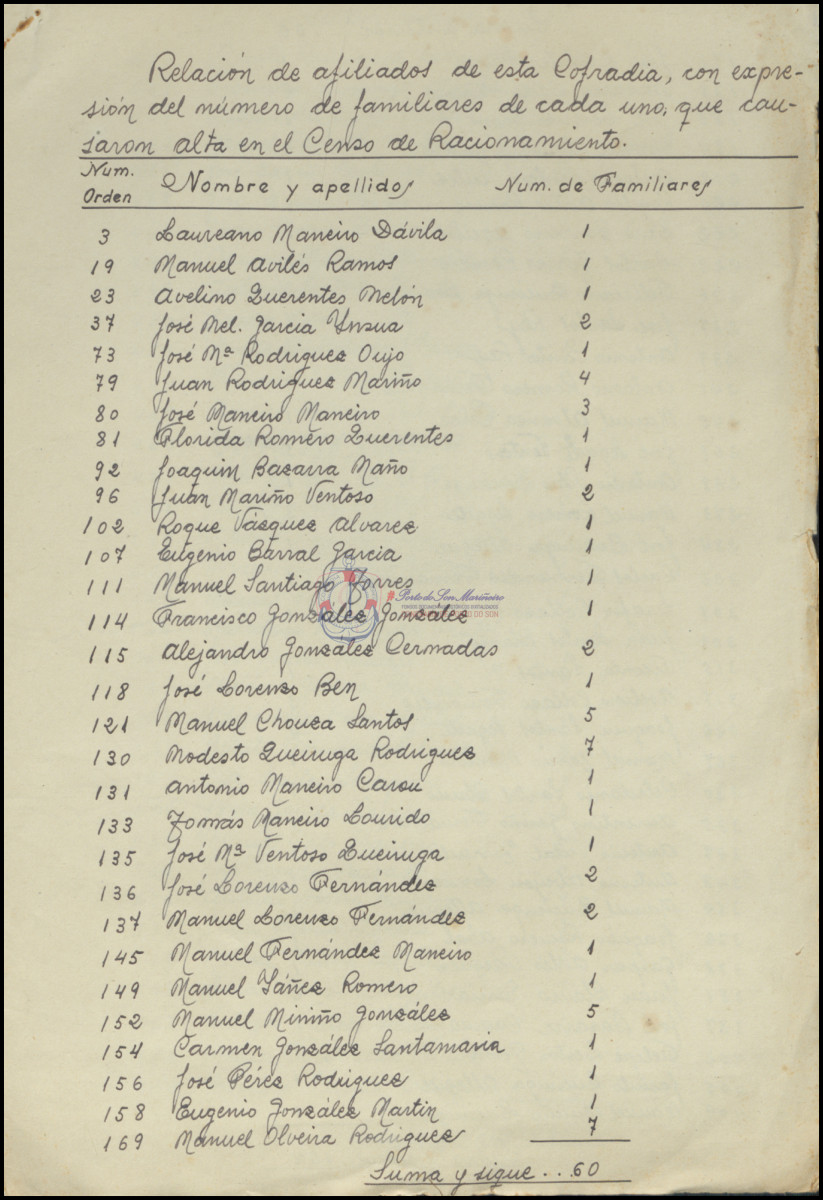 Relación de afiliados de esta Cofradia, con expre-
sión del número de familiares de cada uno, que cau-
saron alta en el Censo de Racionamiento.
Num. Orden Nombre y apellidos Num. de Familiares
3 Laureano Maneiro Dávila 1
19 Manuel Avilés Ramos 1
23 Avelino Querentes Melón 1
37 José Mel. Garcia Ynsua 2
73 José Mª Rodriguez Oujo 1
79 Juan Rodriguez Mariño 4
80 José Maneiro Maneiro 3
81 Florida Romero Querentes 1
92 Joaquin Bazarra Maño 1
96 Juan Mariño Ventoso 2
102 Roque Vásquez Alvarez 1
107 Eugenio Barral Garcia 1
111 Manuel Santiago Torres 1
Porto do Son Mariñeiro
114 Francisco González González 1
115 Alejandro González Cernadas 2
118 José Lorenzo Ben 1
121 Manuel Chouza Santos 5
130 Modesto Queiruga Rodriguez 7
131 Antonio Maneiro Carou 1
133 Tomás Maneiro Lourido 1
135 José Mª Ventoso Queiruga 1
136 José Lorenzo Fernández 2
137 Manuel Lorenzo Fernández 2
145 Manuel Fernández Maneiro 1
149 Manuel Yáñez Romero 1
152 Manuel Miniño González 5
154 Carmen González Santamaria 1
156 José Pérez Rodriguez 1
158 Eugenio González Martin 1
169 Manuel Olveira Rodriguez 7
Suma y sigue . . . 60